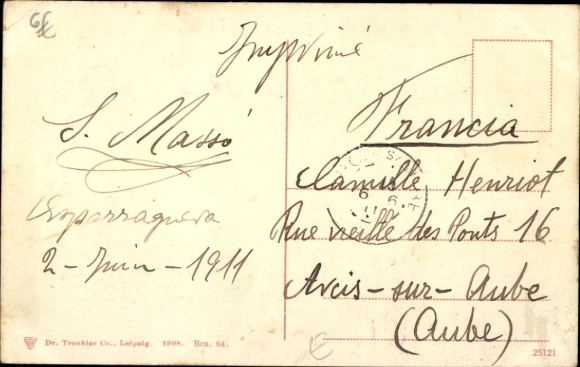 Imprimé
S. Massó
Esparraguera
2 - Juin - 1911
Francia
Camille Henriot
Rue vieille des Ponts 16
Arcis-sur-Aube
(Aube)
Dr. Trenkler Co., Leipzig. 1908. Bcn. 64.
25121